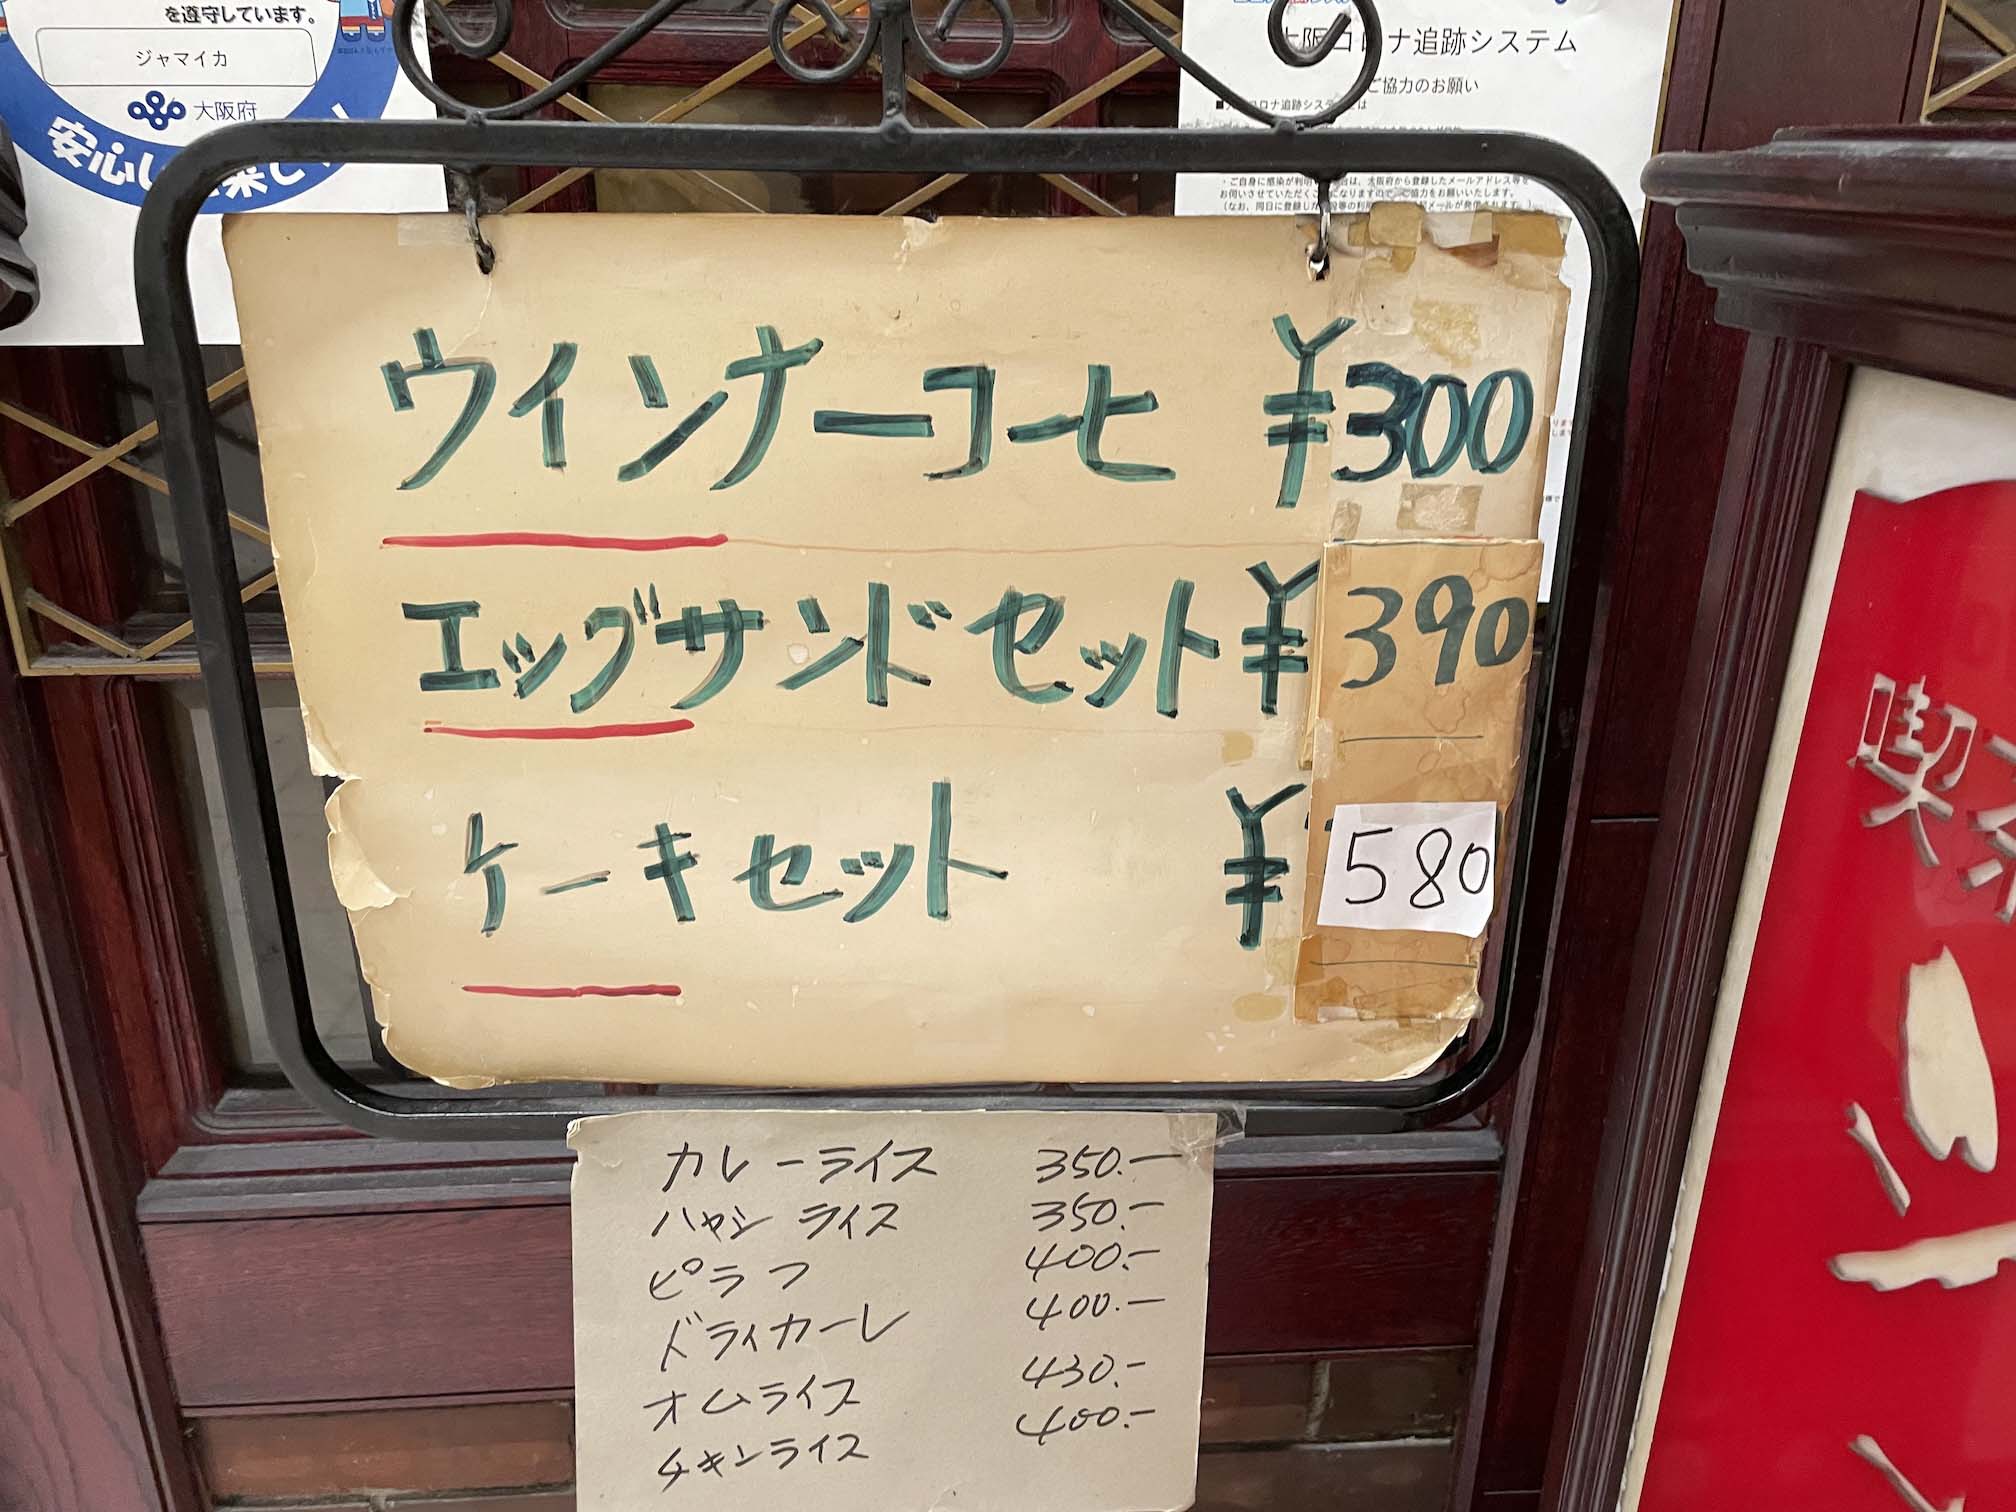 を遵守しています。
ジャマイカ
大阪府
大阪コロナ追跡システム
ご協力のお願い
ウインナーコーヒ ¥300
エッグサンドセット ¥390
ケーキセット ¥580
カレーライス 350.-
ハヤシライス 350.-
ピラフ 400.-
ドライカーレ 400.-
オムライス 430.-
チキンライス 400.-
喫